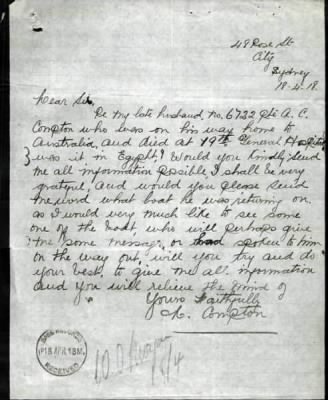 48 Rose St
City
Sydney
18.4.18.
Dear Sir,
Re my late husband, no. 6732 Pte A. C.
Compton who was on his way home to
Australia, and died at 19th General Hospital,
was it in Egypt? Would you kindly send
me all information possible, I shall be very
grateful, and would you please send
me word what boat he was returning on.
as I would very much like to see some
one of the boat, who will perhaps give
me some message, or had spoken to him
on the way out, will you try and do
your best, to give me all information
and you will relieve the mind of
Yours faithfully
A. Compton
RECEIVED